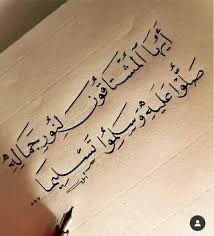 أَيُّهَا الْمُشْتَاقُونَ لِنُورِ جَمَالِهِ
صَلُّوا عَلَيْهِ وَسَلِّمُوا تَسْلِيمًا...